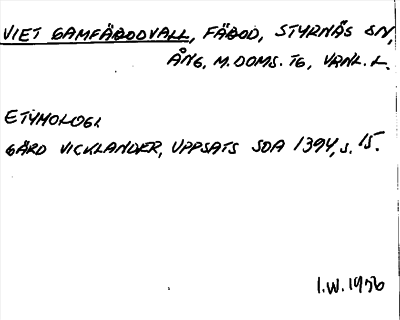 VIET GAMFÄBODVALL, FÄBOD, STYRNÄS SN,
ÅNG. M. DOMS. TG, VRNL. L.
ETYMOLOGI.
GÄRD VICKLANDER, UPPSATS SOA 1394, S. 15.
I.W. 1976